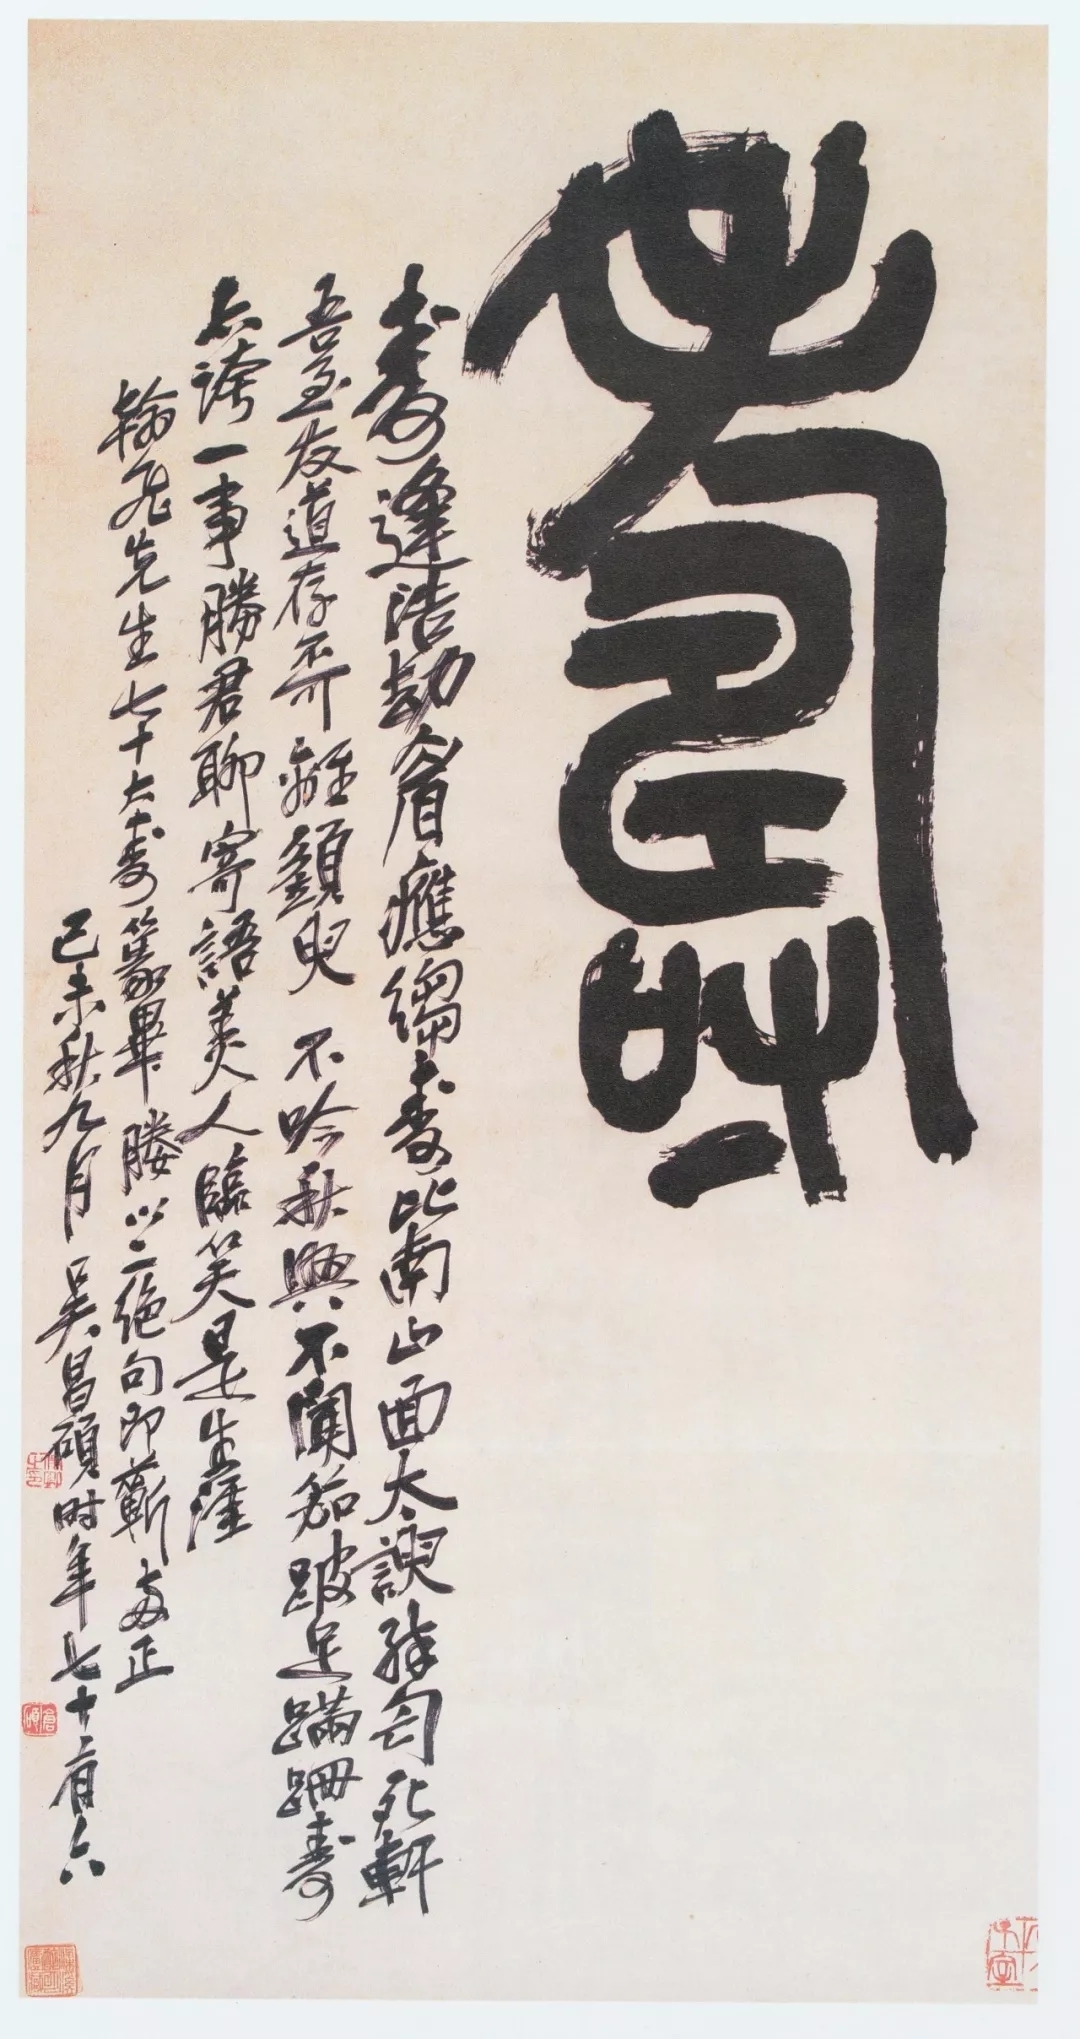 壽
壽逢浩劫眉應縐壽比南山面太諛拜匄死軒
吾至友道存不离頞叟不吟秋興不聞笳跛足蹣跚壽
亦誇一事勝君聊寄語美人臨笑是生涯
翰飛先生七十大壽篆畢媵以二絕句即蘄兩正
己未秋九月吳昌碩時年七十有六